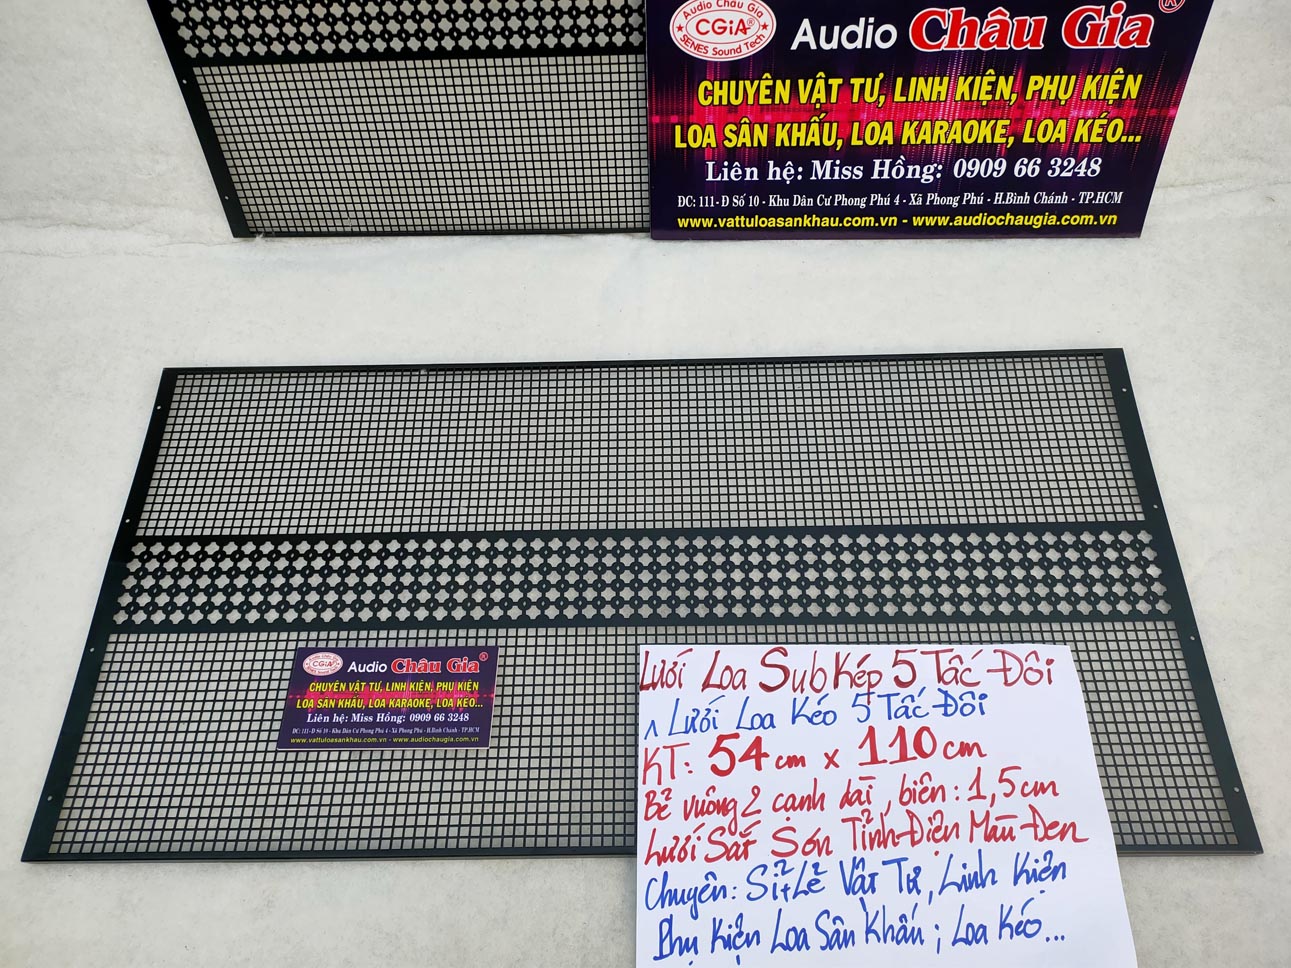 Audio Châu Gia
CGiA®
SENES Sound Tech
Audio Châu Gia®
CHUYÊN VẬT TƯ, LINH KIỆN, PHỤ KIỆN
LOA SÂN KHẤU, LOA KARAOKE, LOA KÉO...
Liên hệ: Miss Hồng: 0909 66 3248
ĐC: 111- Đ Số 10 - Khu Dân Cư Phong Phú 4 - Xã Phong Phú - H.Bình Chánh - TP.HCM
www.vattuloasankhau.com.vn - www.audiochaugia.com.vn
Audio Châu Gia
CGiA®
SENES Sound Tech
Audio Châu Gia®
CHUYÊN VẬT TƯ, LINH KIỆN, PHỤ KIỆN
LOA SÂN KHẤU, LOA KARAOKE, LOA KÉO...
Liên hệ: Miss Hồng: 0909 66 3248
ĐC: 111- Đ Số 10 - Khu Dân Cư Phong Phú 4 - Xã Phong Phú - H.Bình Chánh - TP.HCM
www.vattuloasankhau.com.vn - www.audiochaugia.com.vn
Lưới Loa Sub Kép 5 Tấc Đôi
^ Lưới Loa Kéo 5 Tấc Đôi
KT: 54cm x 110cm
Bẻ vuông 2 cạnh dài, biên: 1,5cm
Lưới Sắt Sơn Tĩnh Điện Màu Đen
Chuyên: Sỉ + Lẻ Vật Tư, Linh Kiện
Phụ Kiện Loa Sân Khấu; Loa Kéo...